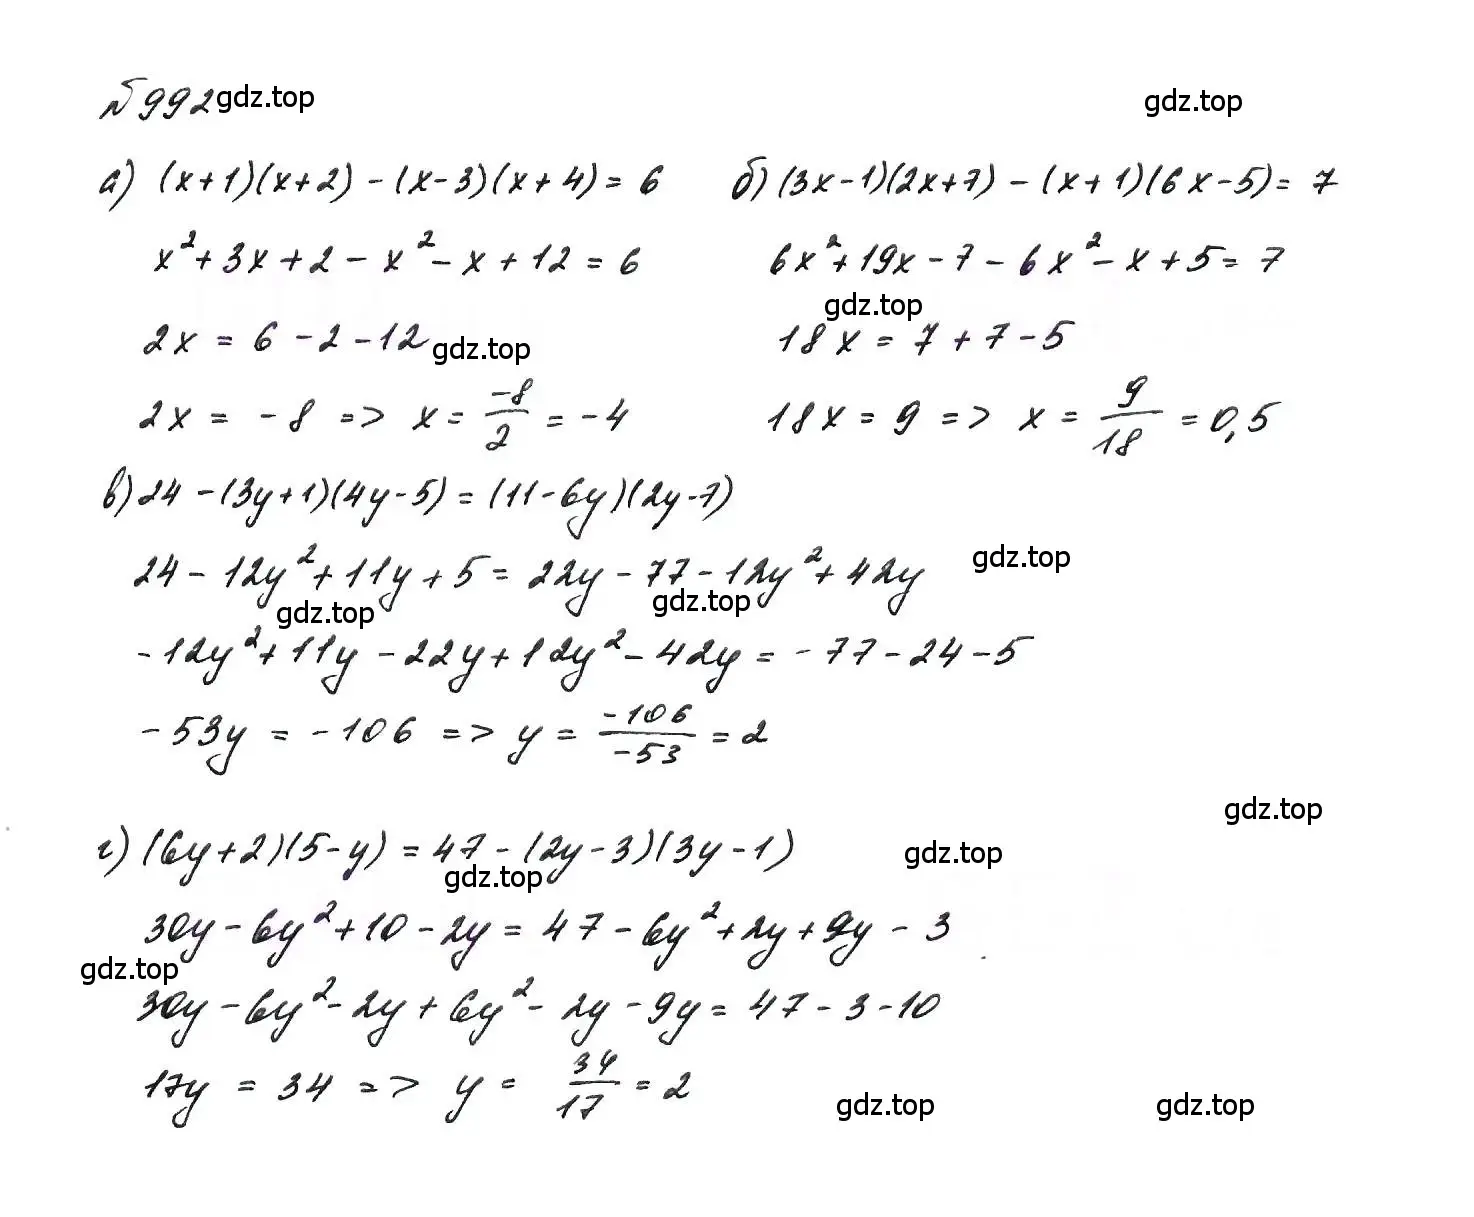 №992 gdz.top gdz.top
а) (x+1)(x+2) - (x-3)(x+4) = 6
x² + 3x + 2 - x² - x + 12 = 6
2x = 6 - 2 - 12 gdz.top
2x = -8 => x = -8/2 = -4
б) (3x-1)(2x+7) - (x+1)(6x-5) = 7
6x² + 19x - 7 - 6x² - x + 5 = 7
gdz.top
18x = 7 + 7 - 5
18x = 9 => x = 9/18 = 0,5
в) 24 - (3y+1)(4y-5) = (11-6y)(2y-7)
24 - 12y² + 11y + 5 = 22y - 77 - 12y² + 42y gdz.top
gdz.top gdz.top
-12y² + 11y - 22y + 12y² - 42y = -77 - 24 - 5
-53y = -106 => y = -106/-53 = 2
gdz.top
г) (6y+2)(5-y) = 47 - (2y-3)(3y-1) gdz.top
gdz.top
30y - 6y² + 10 - 2y = 47 - 6y² + 2y + 9y - 3
gdz.top
30y - 6y² - 2y + 6y² - 2y - 9y = 47 - 3 - 10
17y = 34 => y = 34/17 = 2
gdz.top gdz.top